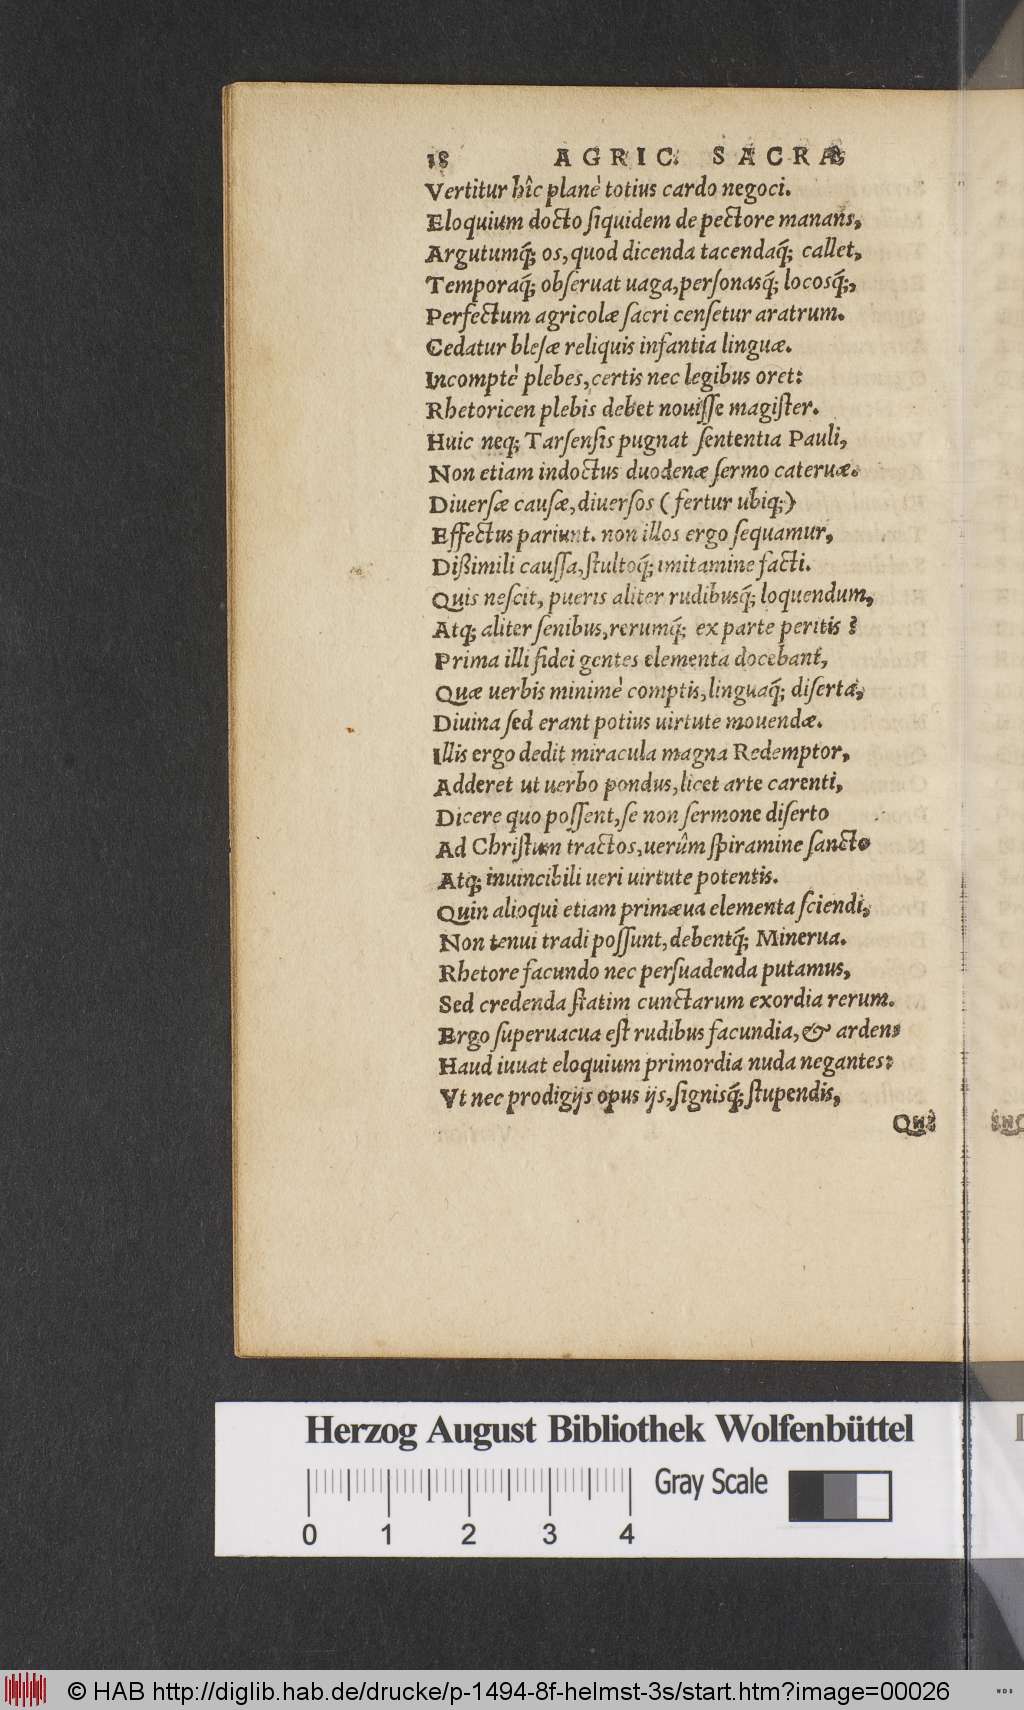 18 AGRIC. SACRÆ
Vertitur hîc planè totius cardo negoci.
Eloquium docto ſiquidem de pectore manans,
Argutumq́; os, quod dicenda tacendaq́; callet,
Temporaq́; obſeruat uaga, perſonasq́; locosq́;,
Perfectum agricolæ ſacri cenſetur aratrum.
Cedatur bleſæ reliquis infantia linguæ.
Incomptè plebes, certis nec legibus oret:
Rhetoricen plebis debet nouiſſe magiſter.
Huic neq; Tarſenſis pugnat ſententia Pauli,
Non etiam indoctus duodenæ ſermo cateruæ.
Diuerſæ cauſæ, diuerſos (fertur ubiq;)
Effectus pariunt. non illos ergo ſequamur,
Dißimili cauſſa, ſtultoq́; imitamine facti.
Quis neſcit, pueris aliter rudibusq́; loquendum,
Atq; aliter ſenibus, rerumq́; ex parte peritis?
Prima illi fidei gentes elementa docebant,
Quæ uerbis minimè comptis, linguaq́; diſerta,
Diuina ſed erant potius uirtute mouendæ.
Illis ergo dedit miracula magna Redemptor,
Adderet ut uerbo pondus, licet arte carenti,
Dicere quo poſſent, ſe non ſermone diſerto
Ad Chriſtum tractos, uerûm ſpiramine ſancto
Atq; inuincibili ueri uirtute potentis.
Quin alioqui etiam primæua elementa ſciendi,
Non tenui tradi poſſunt, debentq́; Minerua.
Rhetore facundo nec perſuadenda putamus,
Sed credenda ſtatim cunctarum exordia rerum.
Ergo ſuperuacua eſt rudibus facundia, & ardens
Haud iuuat eloquium primordia nuda negantes:
Vt nec prodigijs opus ijs, ſignisq́; ſtupendis,
Herzog August Bibliothek Wolfenbüttel
Gray Scale
0 1 2 3 4
© HAB http://diglib.hab.de/drucke/p-1494-8f-helmst-3s/start.htm?image=00026